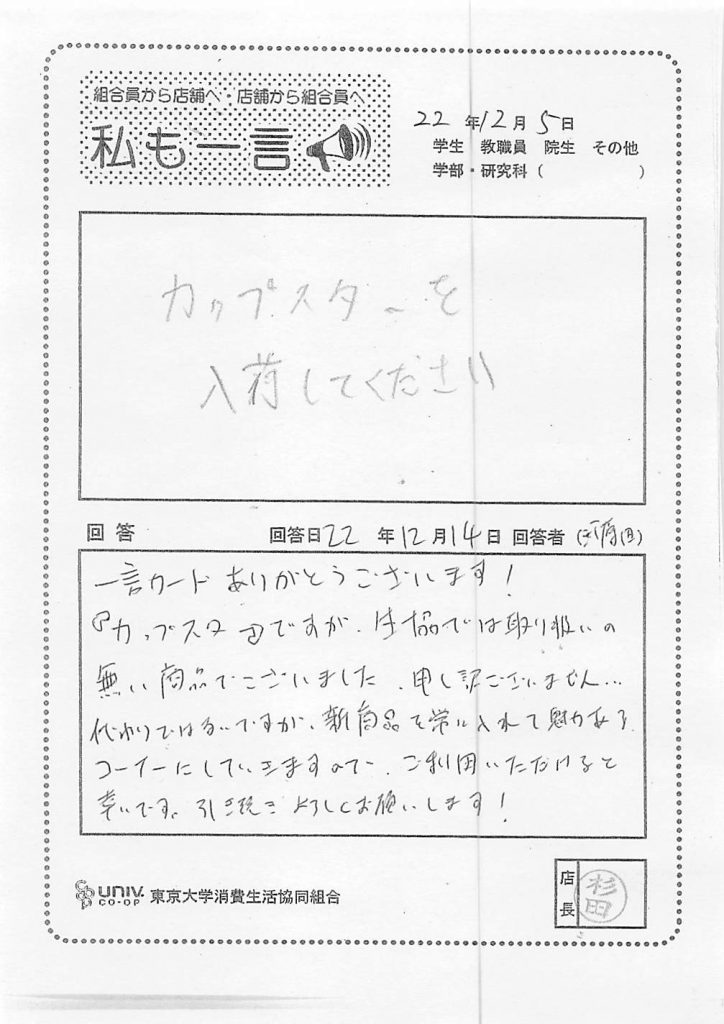 組合員から店舗へ・店舗から組合員へ
私も一言
22年12月5日
学生 教職員 院生 その他
学部・研究科( )
カップスターを
入荷してください
回答 回答日22年12月14日 回答者
一言カードありがとうございます!
『カップスター』ですが、生協では取り扱いの
無い商品でございました。申し訳ございません…
代わりではないですが、新商品を常に入れて魅力ある
コーナーにしていきますので、ご利用いただけると
幸いです。引き続きよろしくお願いします!
UNIV. CO-OP 東京大学消費生活協同組合
店長 杉田